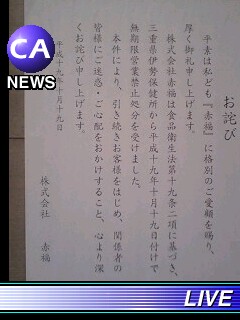 CA
NEWS
お詫び
平素は私ども『赤福』に格別のご愛顧を賜り、
厚く御礼申し上げます。
株式会社赤福は食品衛生法第十九条二項に基づき、
三重県伊勢保健所から平成十九年十月十九日付けで
無期限営業禁止処分を受けました。
本件により、引き続きお客様をはじめ、関係者の
皆様にご迷惑・ご心配をおかけすること、心より深
くお詫び申し上げます。
平成十九年十月十九日
株式会社 赤福
LIVE